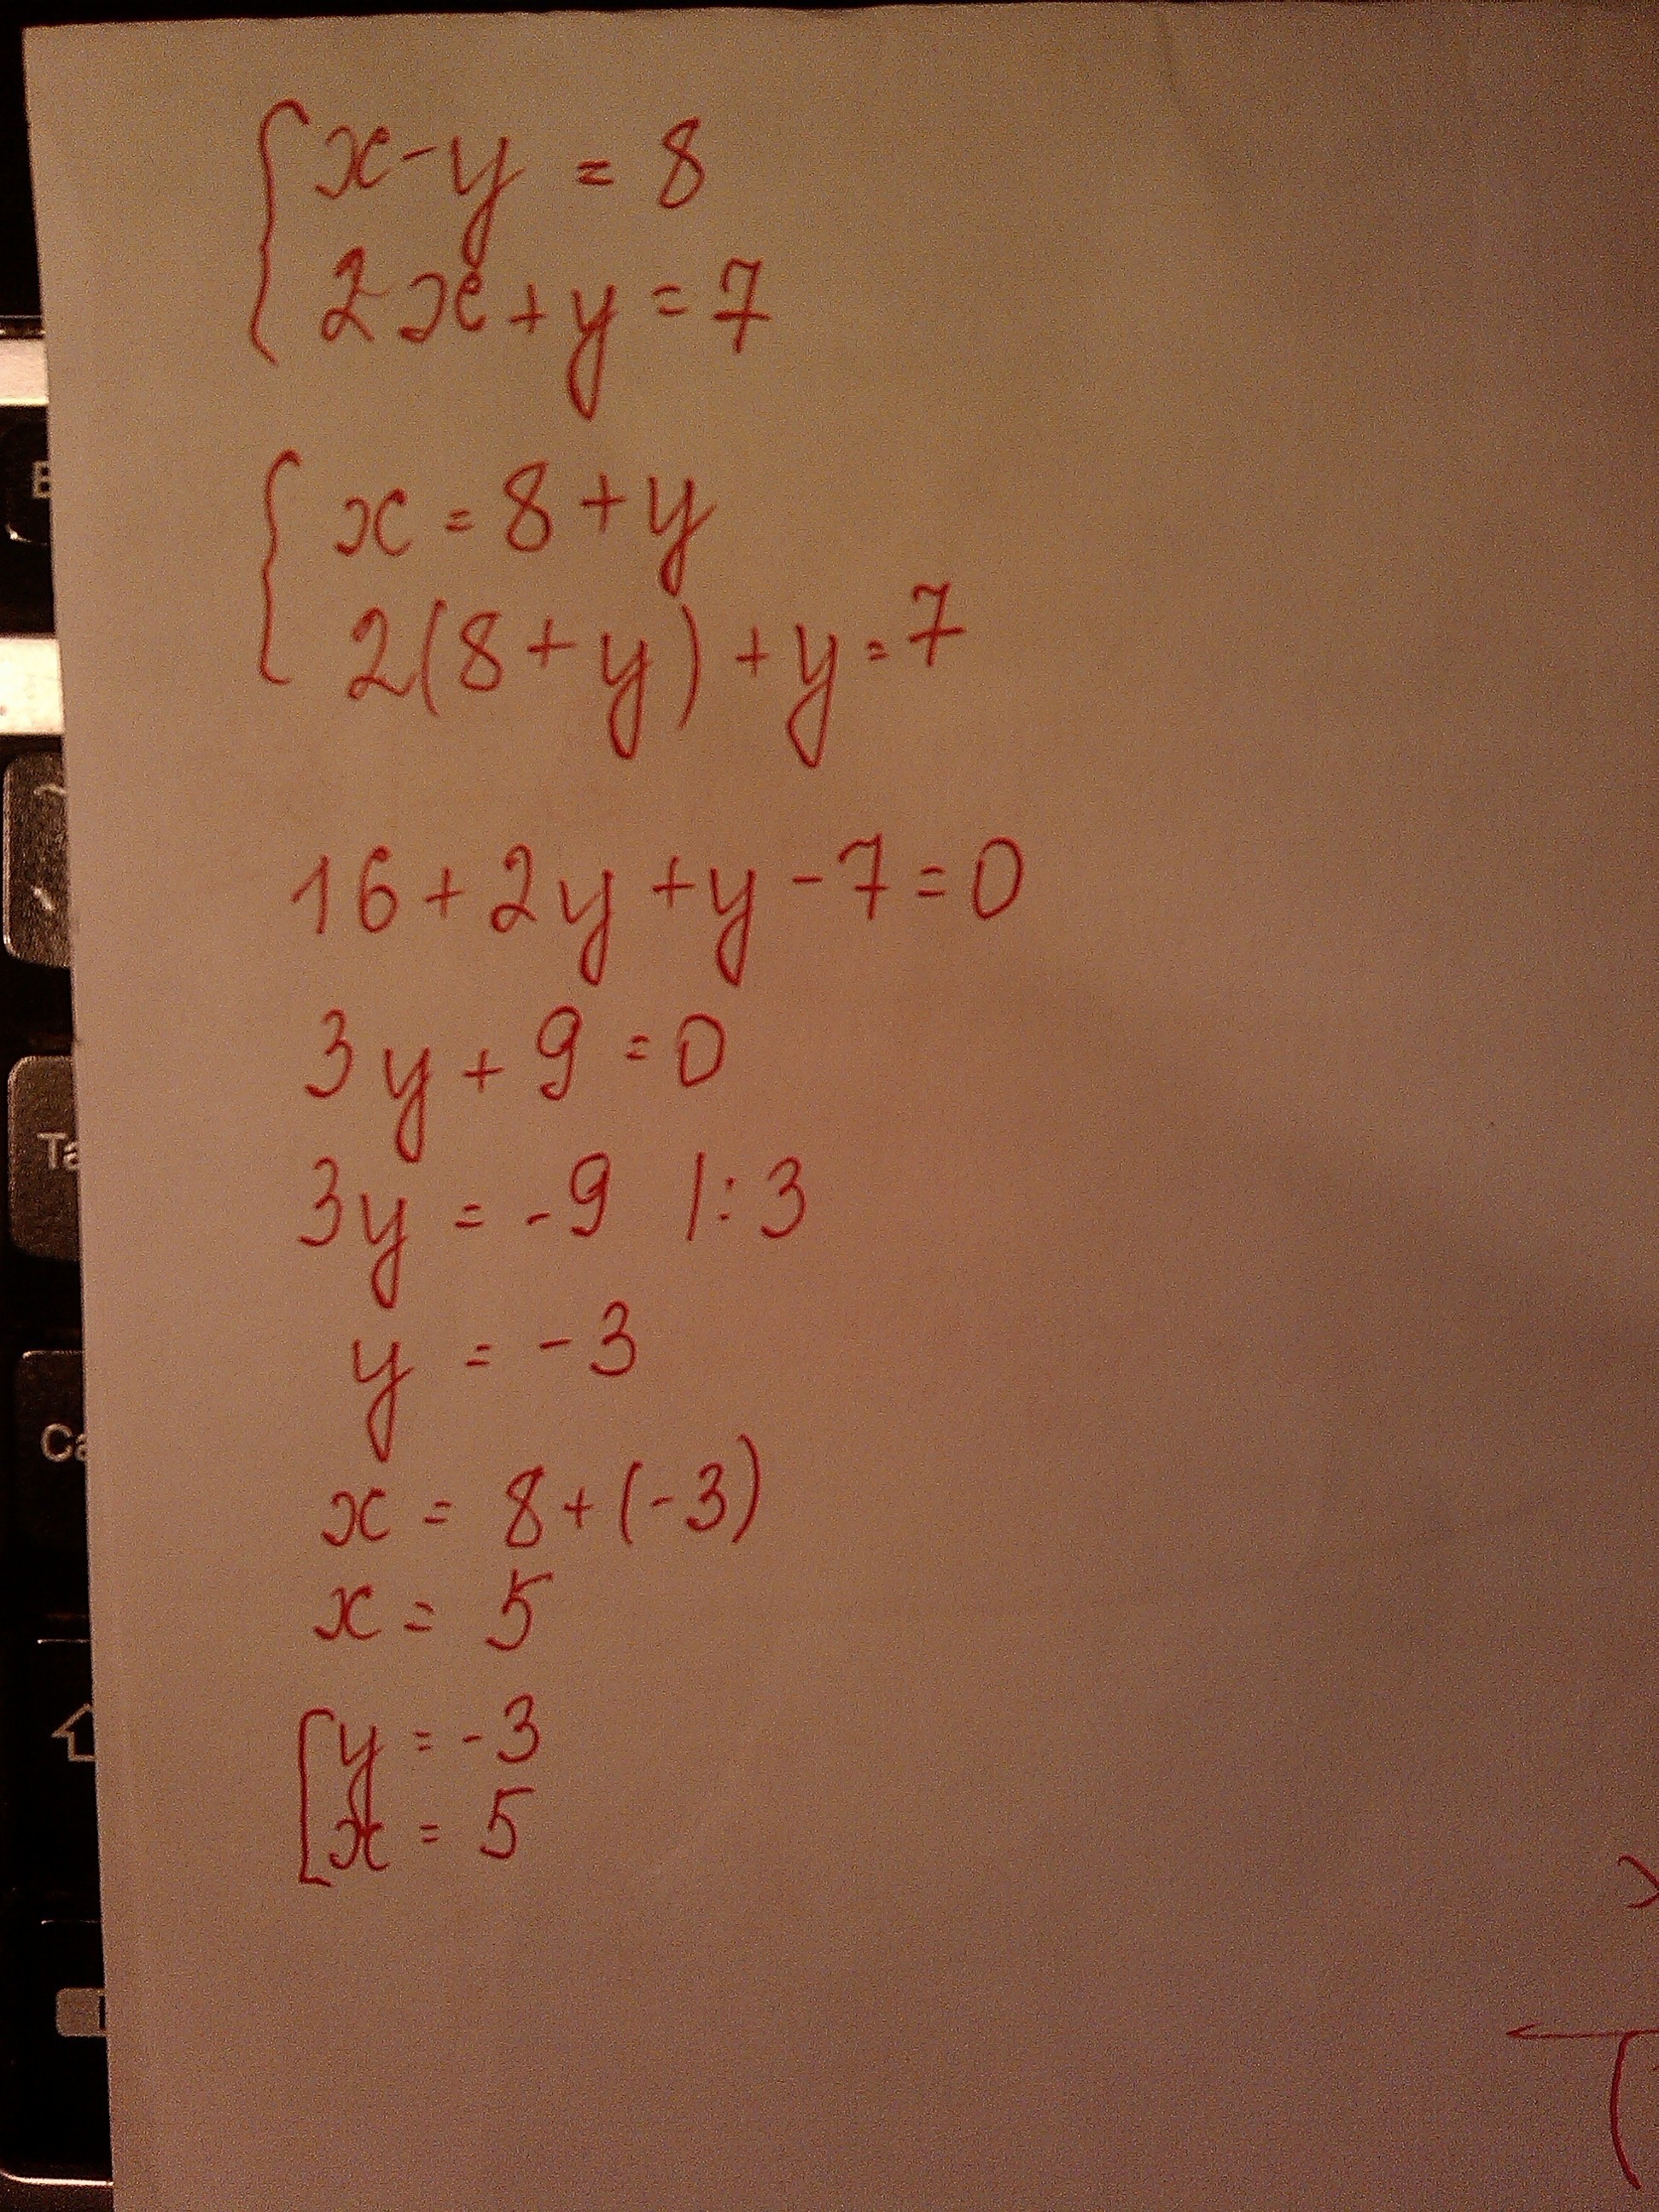 x-y = 8
2x+y=7
x = 8+y
2(8+y)+y=7
16+2y+y-7=0
3y+9=0
3y = -9 |:3
y = -3
x = 8+(-3)
x = 5
y = -3
x = 5